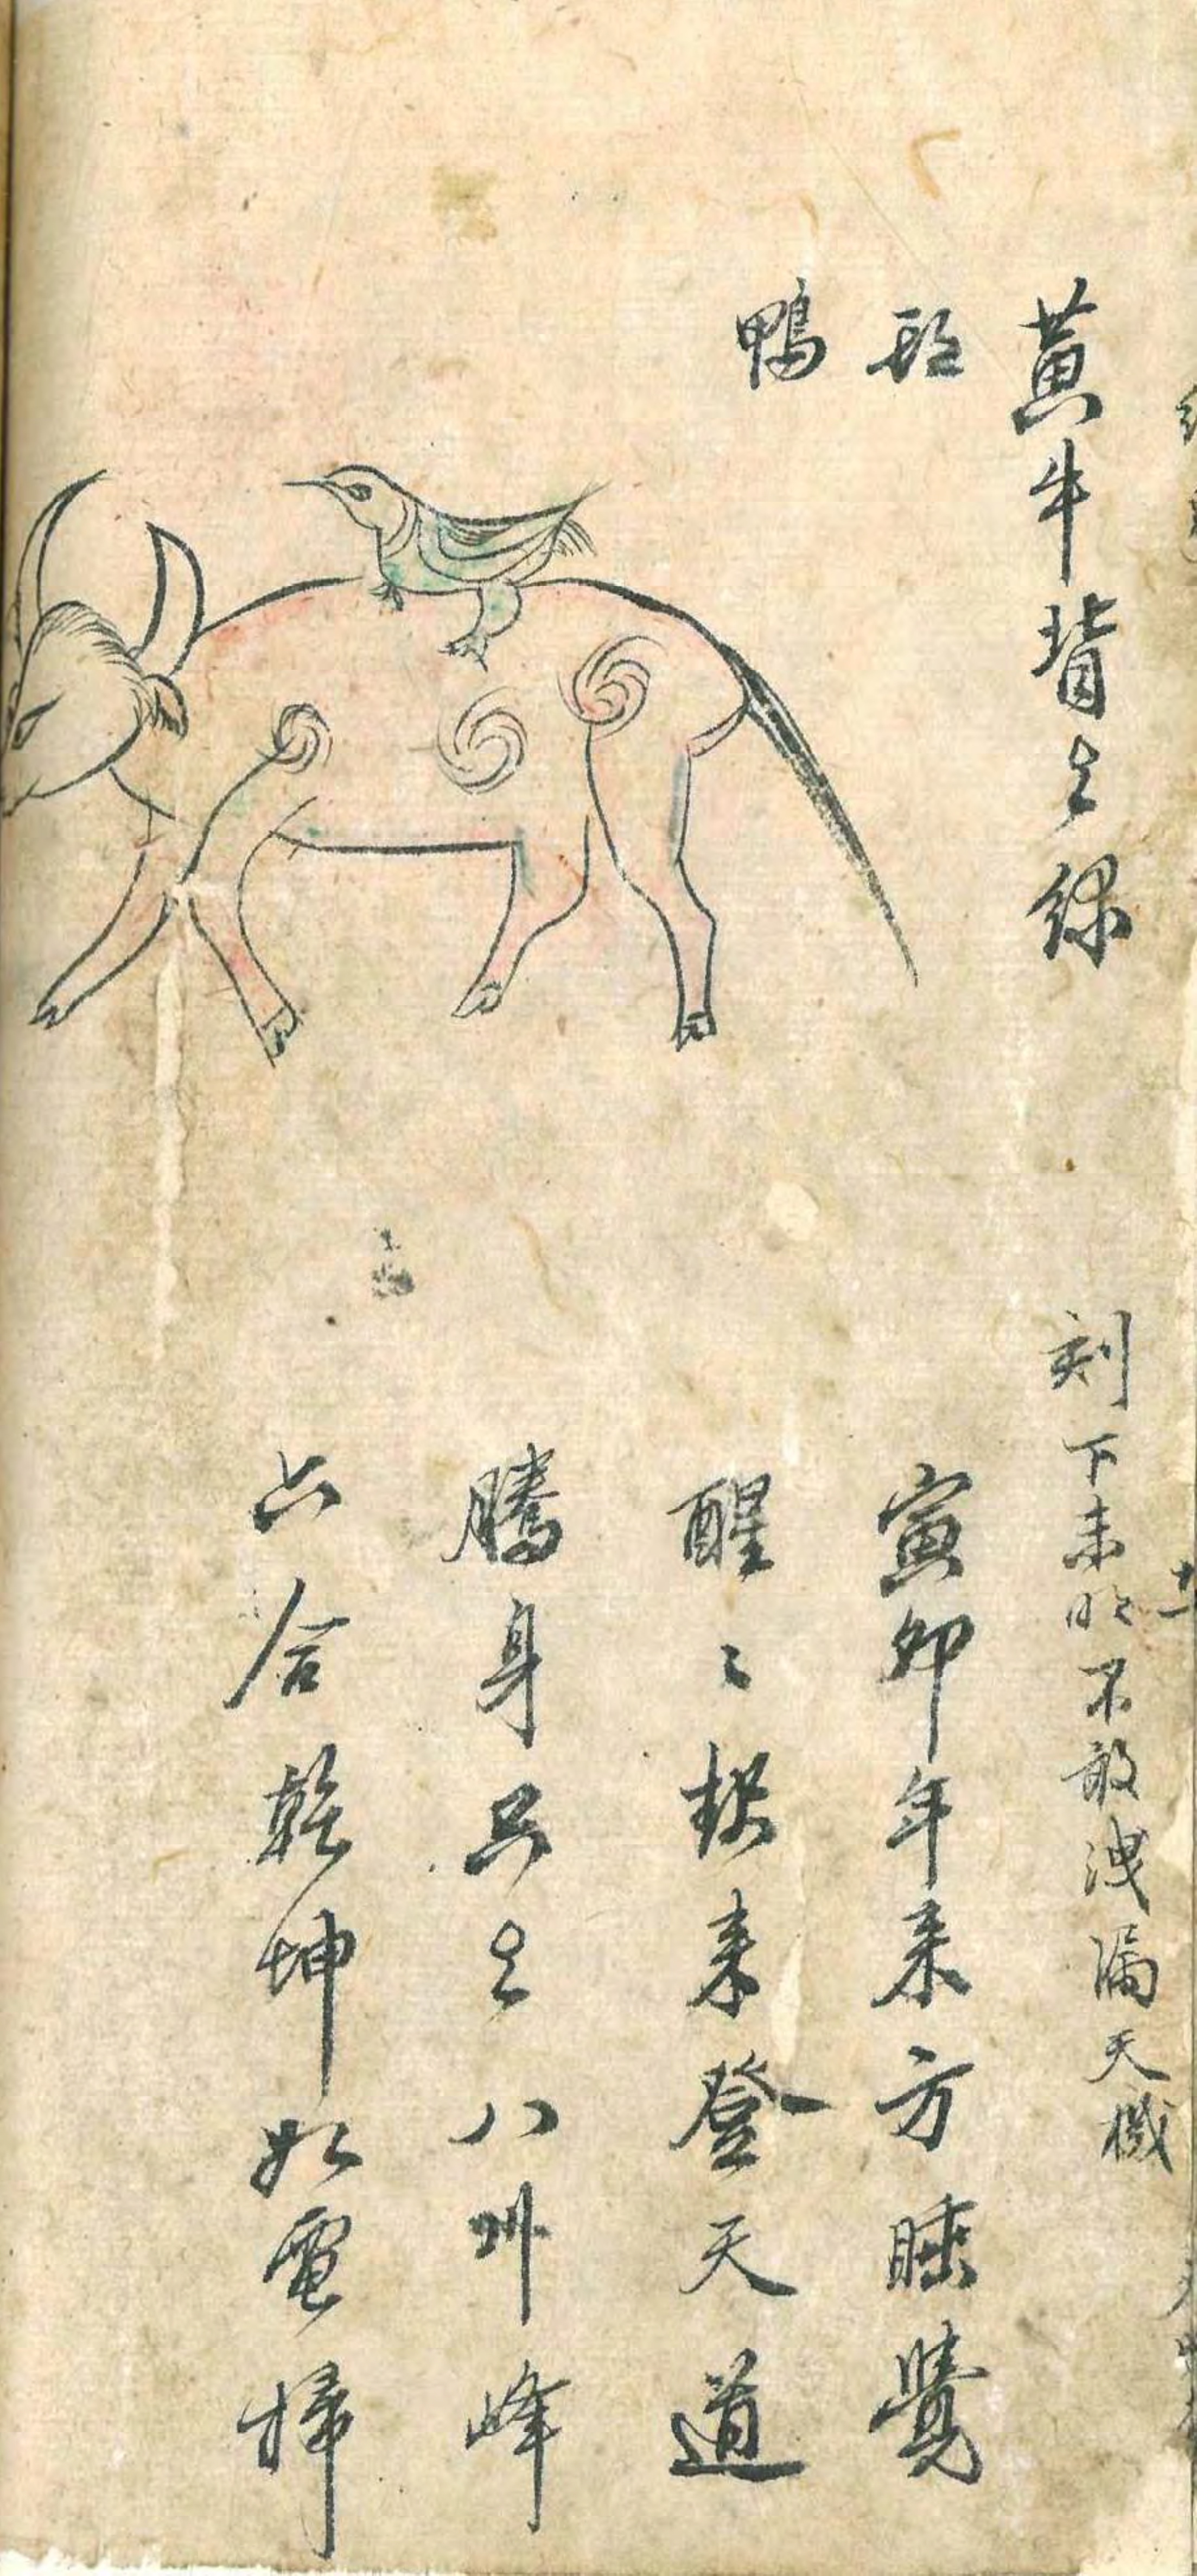 黃牛背上綠
鴨
刻下未明不敢洩漏天機
寅卯年來方睡覺
醒〻起來登天道
騰身只上八州峰
六合乾坤如電掃